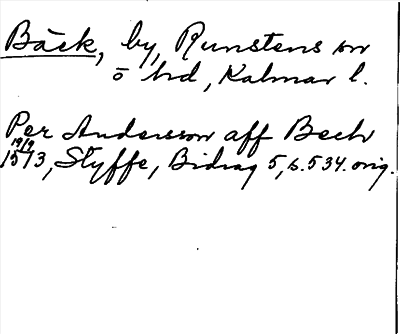 Bäck, by, Runstens sn
ö hd, Kalmar l.
Per Andersson aff Bech
19/9
1513, Styffe, Bidrag 5, s. 534. orig.